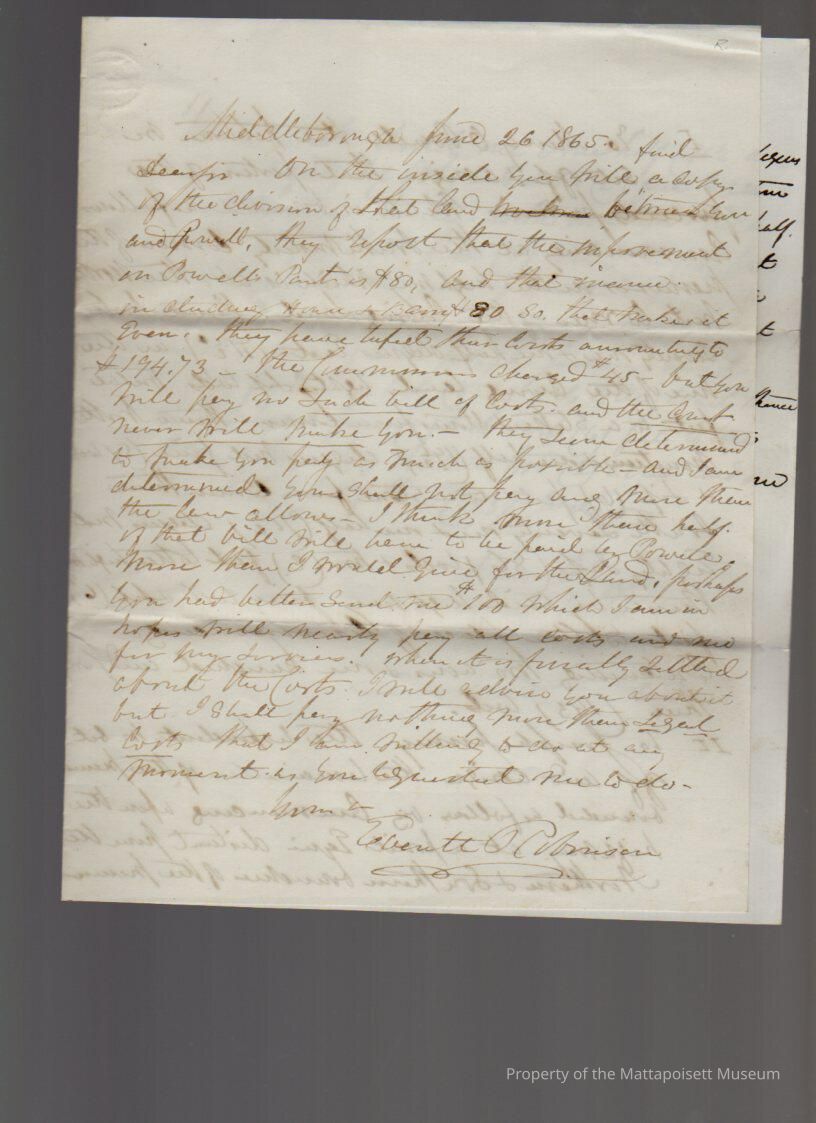 R
Middleborough June 26 1865.
Dear sir On the inside you will find a copy
of the division of that land between you
and Powell, they report that the improvement
on Powells Part is $80, and that
including House & Barn $80 So that makes it
Even. they have taxed their Costs amounting to
$194.73 – The Commissioners Charged $45 – but you
will pay no Such bill of Costs. and the Court
never will make you. – they seem determined
to make you pay as much as possible – and I am
determined you shall not pay any more then
the law allows – I think more then half
of that bill will have to be paid by Powell,
more then I would give for the Land, perhaps
you had better Send me $100 which I am in
hopes will nearly pay all costs and me
for my services. when it is finally Settled
about the Costs I will advise you about it
but I Shall pay nothing more then Legal
Costs that I am willing to do at any
moment as you requested me to do –
Yours
Everett Robinson
half.
Property of the Mattapoisett Museum